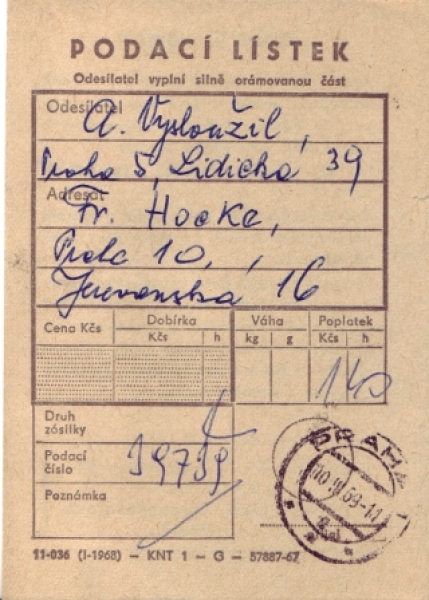 PODACÍ LÍSTEK
Odesílatel vyplní silně orámovanou část
Odesílatel A. Vysloužil,
Praha 5, Lidická 39
Adresát Fr. Hocke,
Praha 10,,
Jerevanská 16
Cena Kčs Dobírka Váha Poplatek
Kčs h kg g Kčs h
140
Druh zásilky
Podací číslo 19719
Poznámka
PRAHA
11-036 (I-1968) — KNT 1 — G — 57887-67